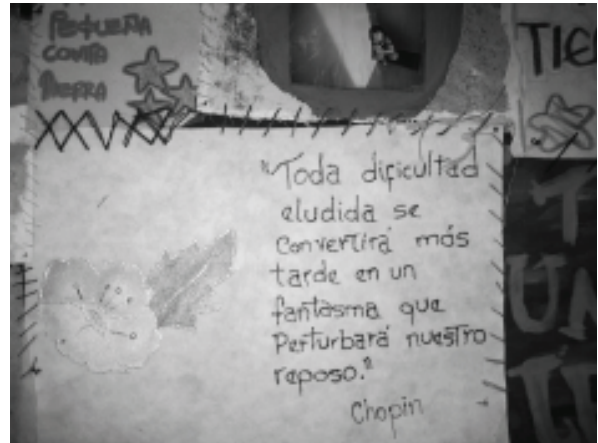 PEQUEÑA
COMTA
TIE
"Toda dificultad
eludida se
convertirá más
tarde en un
fantasma que
perturbará nuestro
reposo."
Chopin
T
UN